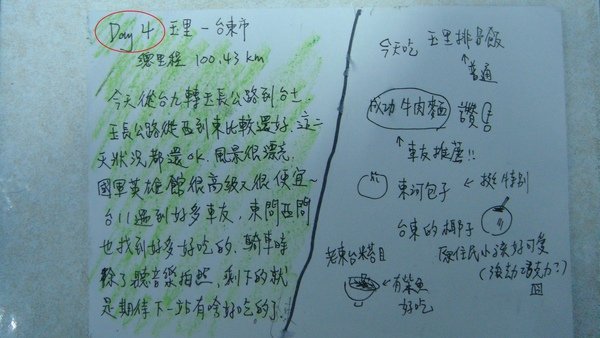 Day 4 玉里 — 台東市
總里程 100.43 km
今天從台九轉玉長公路到台11.
玉長公路從西到東比較還好.這二
天狀況都還OK.風景很漂亮.
國軍英雄館很高級又很便宜~
台11遇到好多車友,東問西問
也找到好多好吃的.騎車時
除了聽音樂拍照,剩下的就
是期待下一站有啥好吃的了.
今天吃 玉里排骨飯
↑普通
成功牛肉麵 讚
↑車友推薦!!
東河包子 ←挺特別
台東的椰子
原住民小孩好可愛
(強劫巧克力?)
老東台米苔目
←有柴魚
好吃